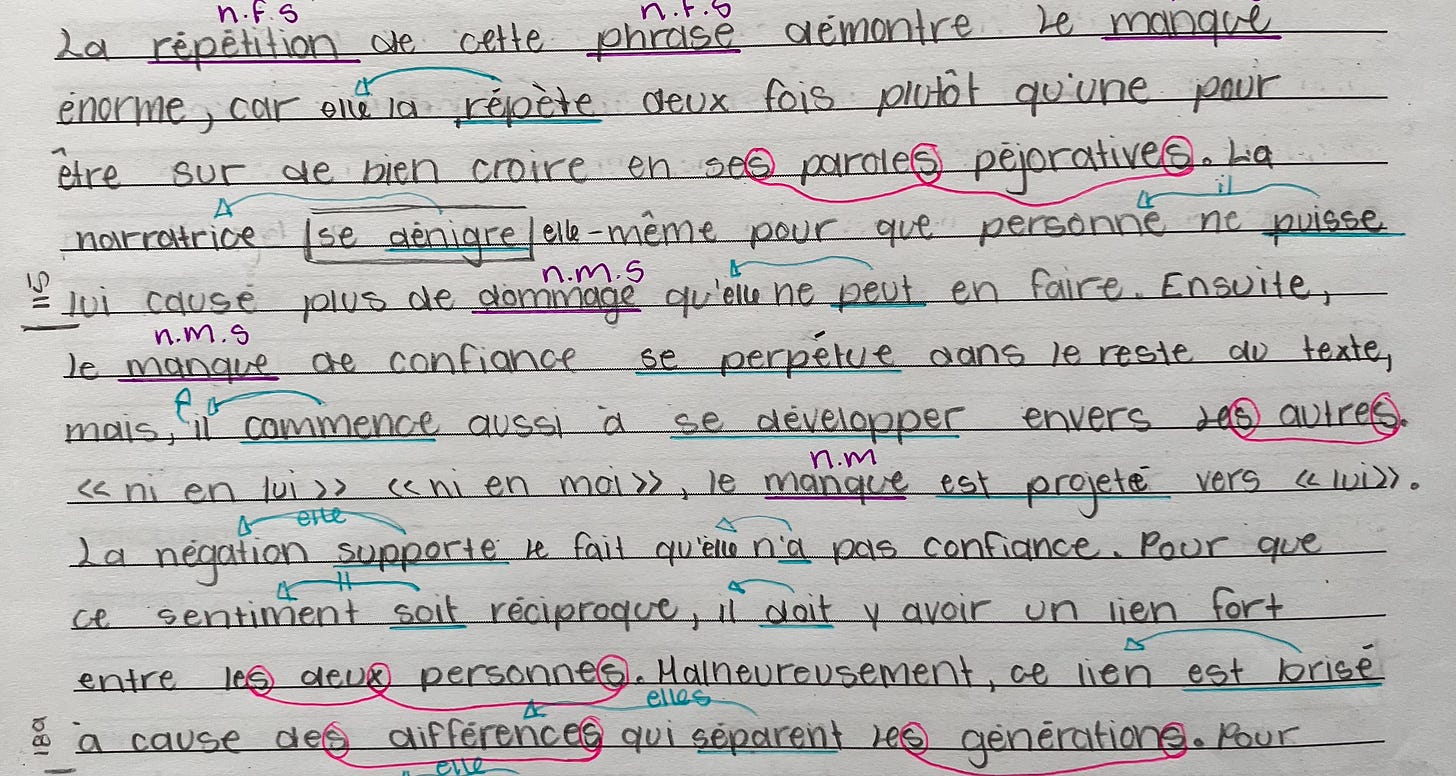 n.f.s n.f.s
La répétition de cette phrase démontre le manque
énorme, car elle la répète deux fois plutôt qu'une pour
être sur de bien croire en ses paroles péjoratives. La
il
narratrice se dénigre elle-même pour que personne ne puisse
n.m.s
lui causé plus de dommage qu'elle ne peut en faire. Ensuite,
n.m.s
le manque de confiance se perpétue dans le reste du texte,
mais, il commence aussi à se développer envers les autres.
n.m
<< ni en lui >> << ni en moi >>, le manque est projeté vers << lui >>.
elle
La négation supporte le fait qu'elle n'a pas confiance. Pour que
ce sentiment soit réciproque, il doit y avoir un lien fort
entre les deux personnes. Malheureusement, ce lien est brisé
elles
à cause des différences qui séparent les générations. Pour
elle